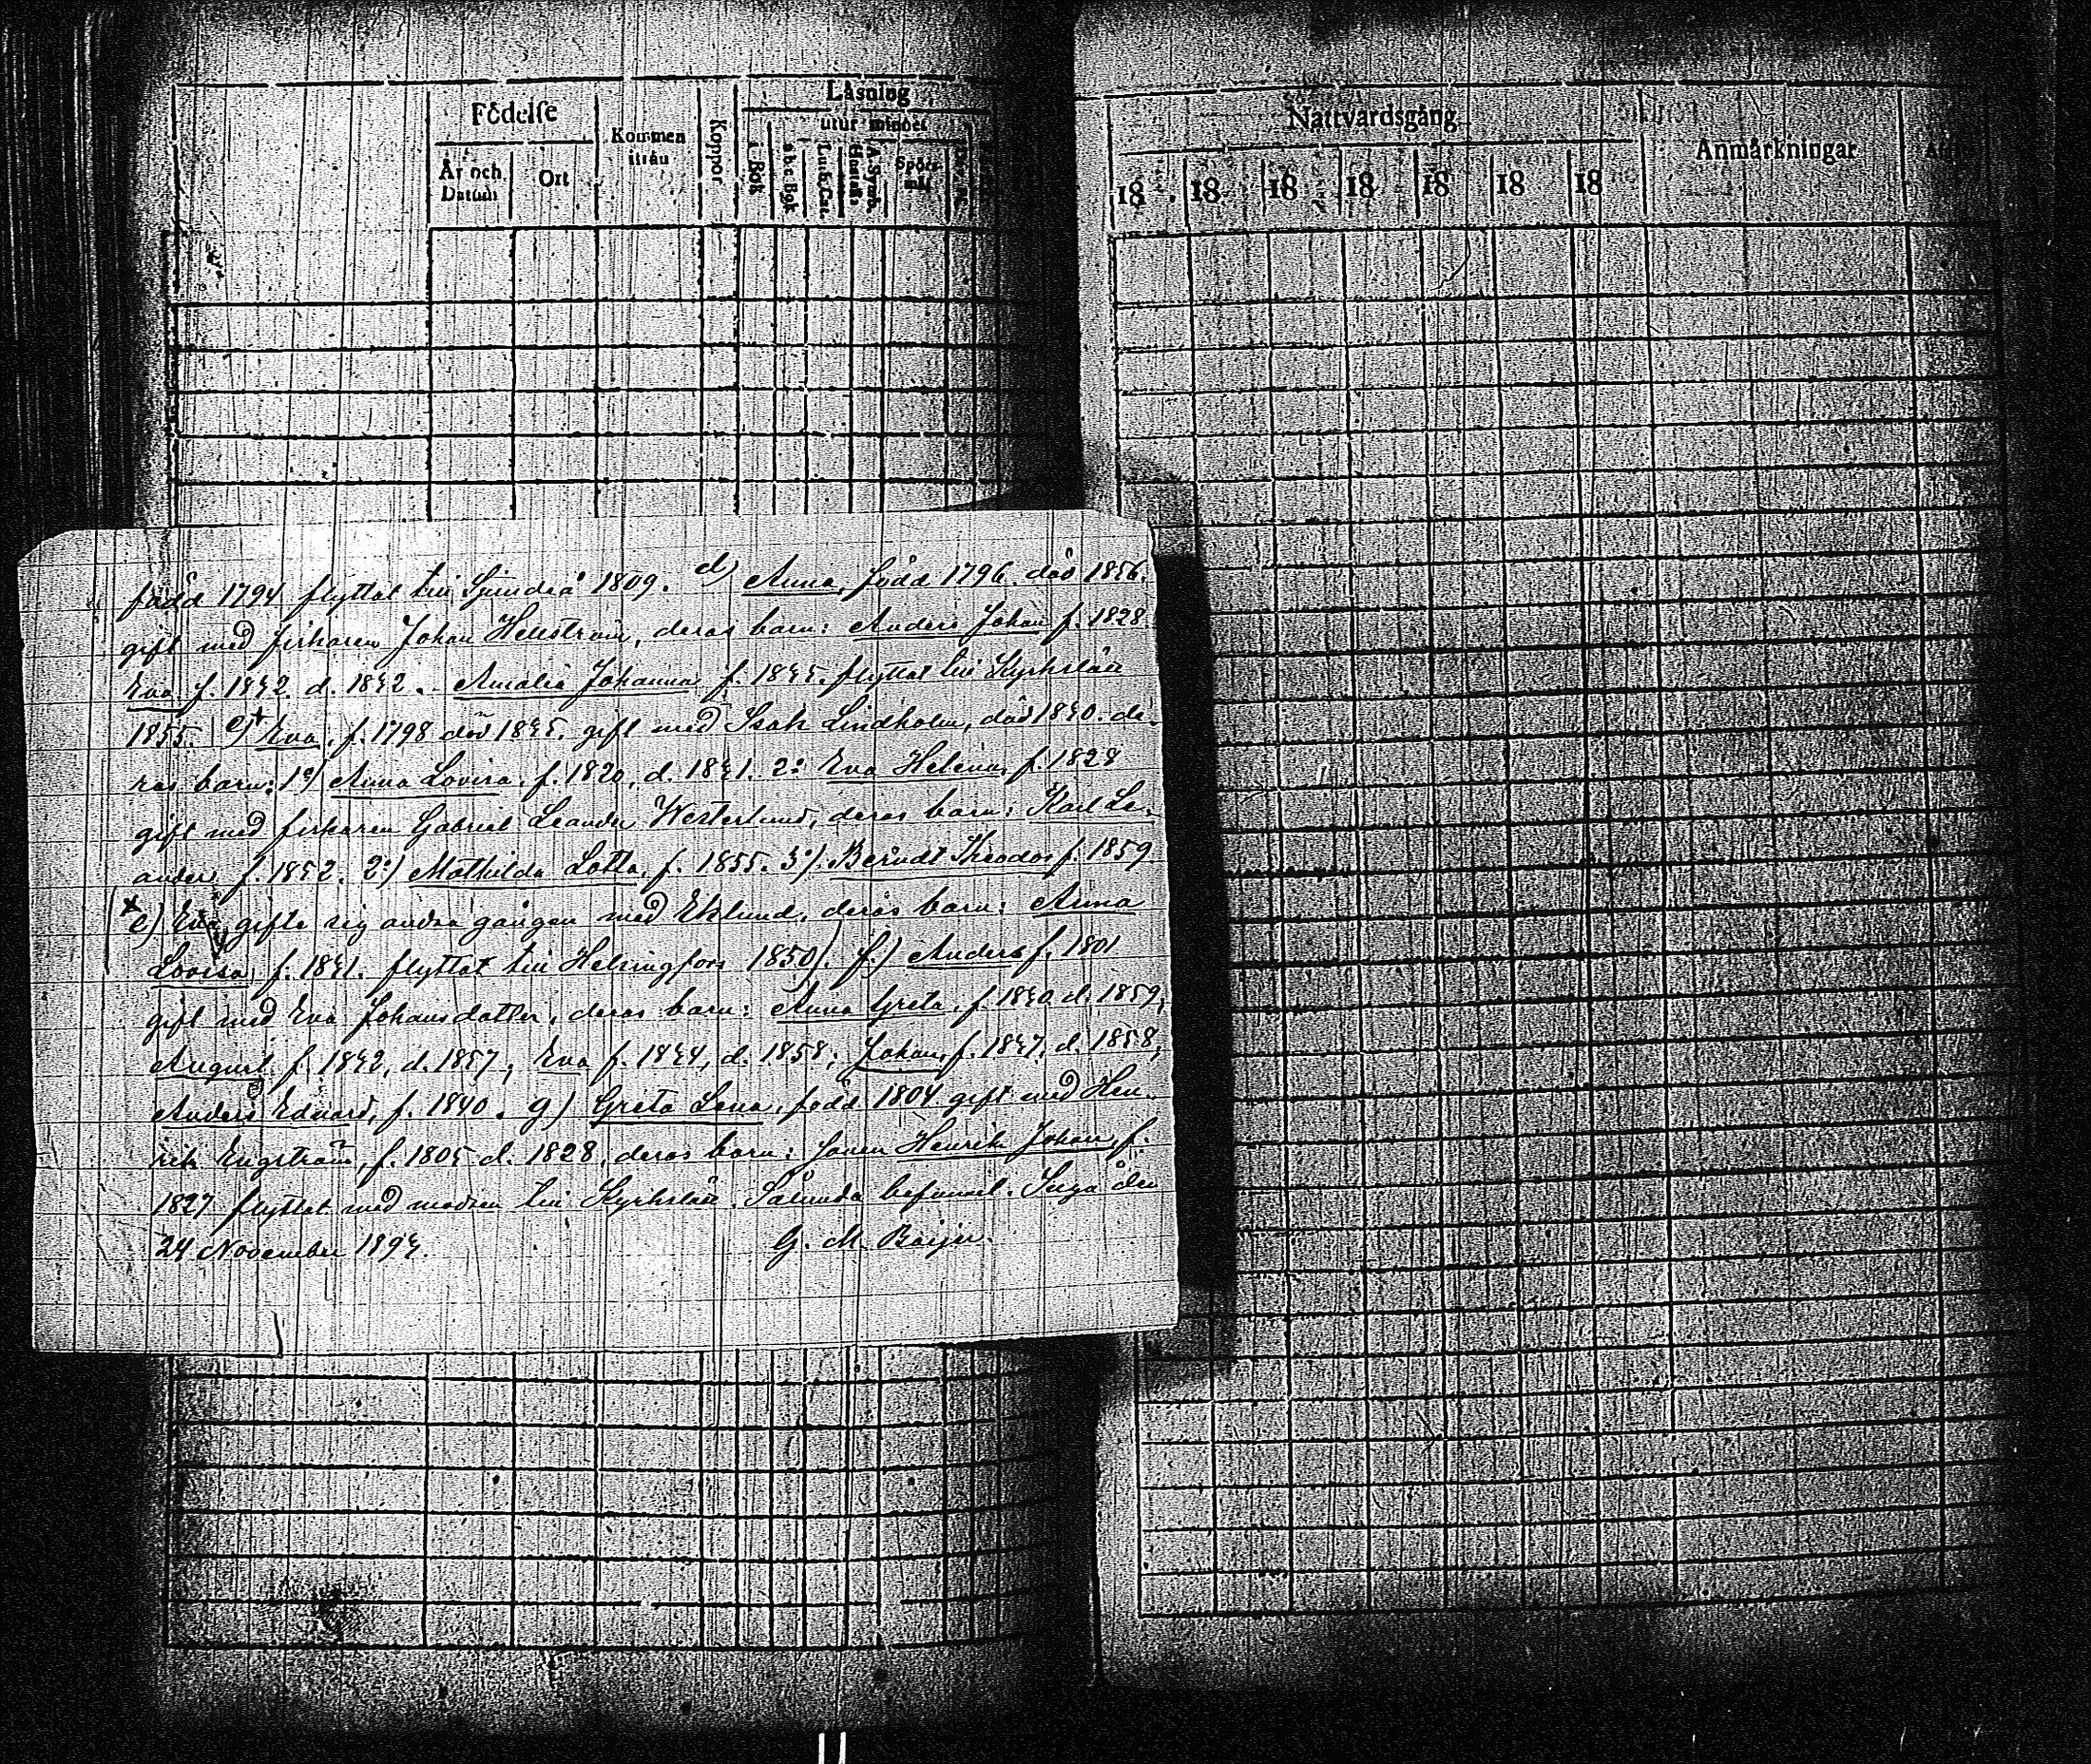 Födelse
År och Datum
Ort
Kommen ifrån
Koppor
Läsning
utur minnet
i Bok
a b c Bok
Luth. Cat.
Hustafl.
A. Symb.
Spörsmål
Nattvardsgång
18 18 18 18 18 18 18
Anmärkningar
född 1794 flyttat till Sjundeå 1809. d) Anna, född 1796. död 1856.
gift med fiskaren Johan Hellström, deras barn: Anders Johan f. 1828
Eva f. 1832. d. 1832. Amalia Johanna f. 1835. flyttat till Kyrkslätt
1855. e) Eva, f. 1798 död 1845. gift med Isak Lindholm, död 1830. de-
ras barn: 1o) Anna Lovisa, f. 1820, d. 1821. 2o Eva Helena, f. 1828
gift med fiskaren Gabriel Leander Westerlund, deras barn: Karl Le-
ander, f. 1852. 2o) Mathilda Lotta, f. 1855. 3o). Berndt Theodor f. 1859
e) Eva gifte sig andra gången med Eklund, deras barn: Anna
Lovisa, f. 1831. flyttat till Helsingfors 1850). f.) Anders f. 1801
gift med Eva Johansdotter, deras barn: Anna Greta, f. 1830 d. 1859;
August f. 1832, d. 1857; Eva f. 1834, d. 1858; Johan, f. 1837, d. 1858;
Anders Edvard, f. 1840. g) Greta Lena, född 1804 gift med Hen-
rik Engström, f. 1805 d. 1828, deras barn: sonen Henrik Johan, f.
1827 flyttat med modren till Kyrkslätt. Sålunda befunnet. Inga den
24 November 1893.
G. M. Boijer.